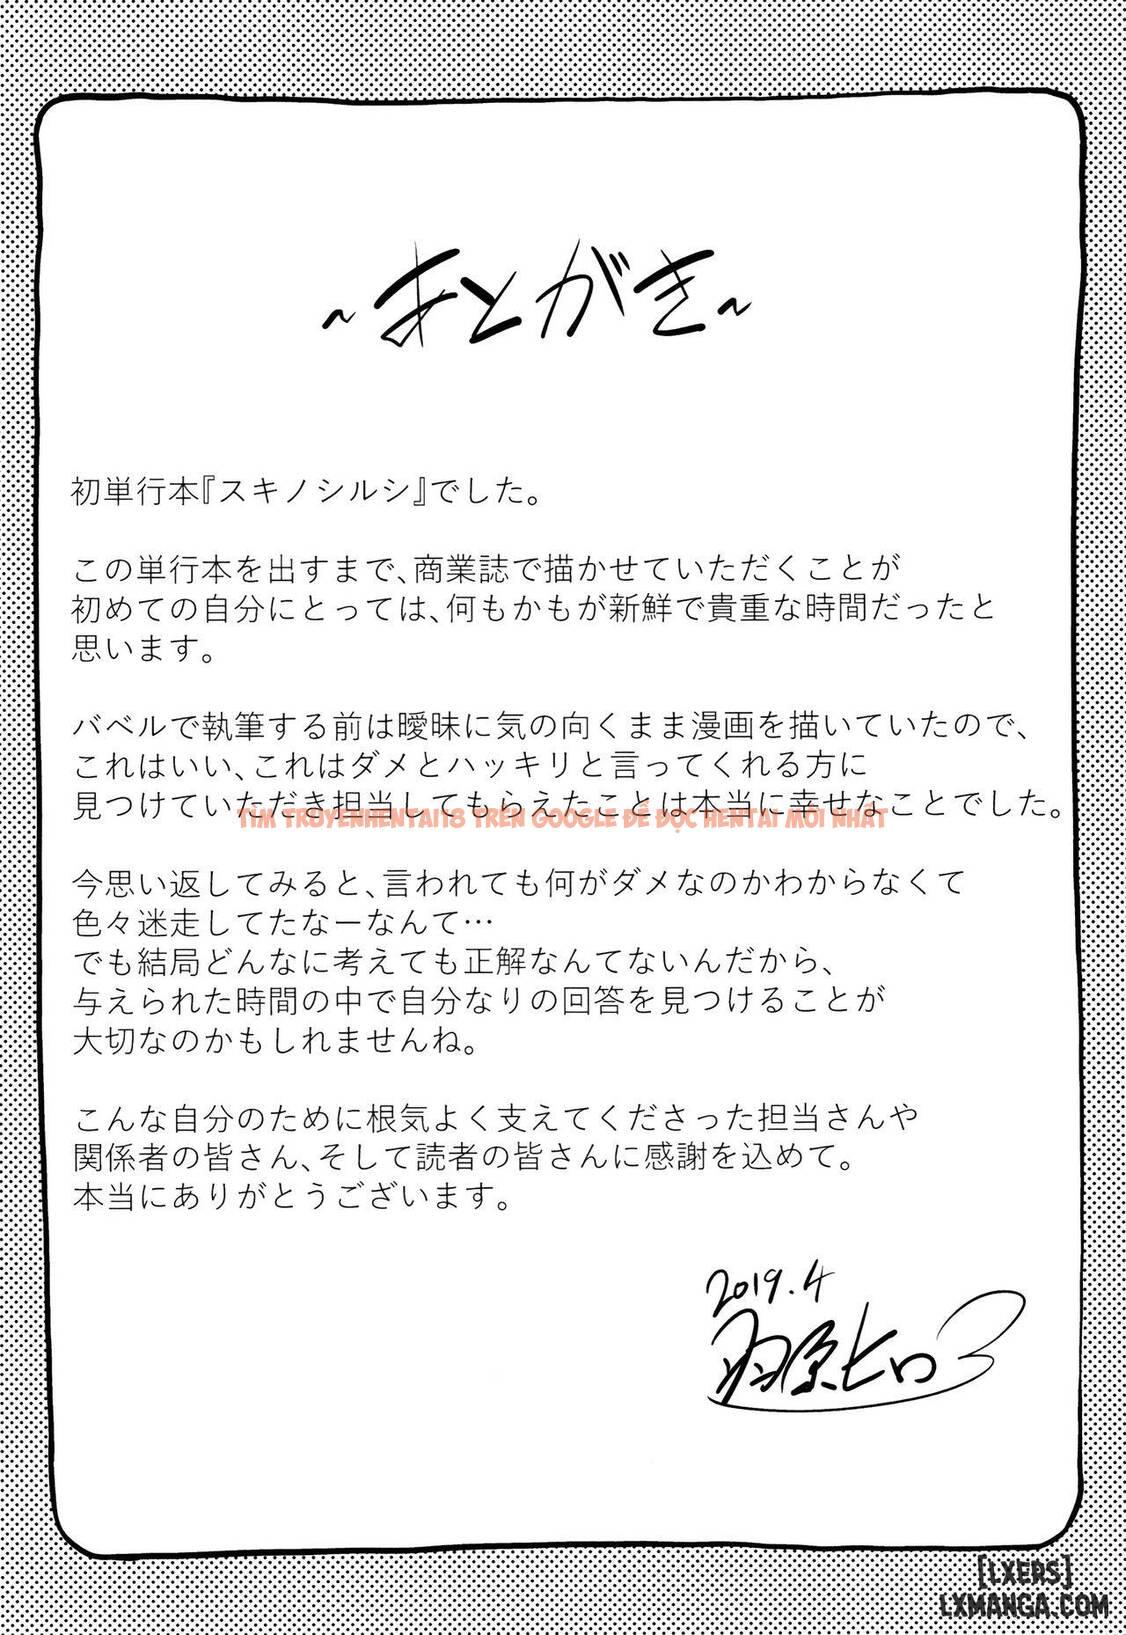 ~あとがき~
初単行本『スキノシルシ』でした。
この単行本を出すまで、商業誌で描かせていただくことが
初めての自分にとっては、何もかもが新鮮で貴重な時間だったと
思います。
バベルで執筆する前は曖昧に気の向くまま漫画を描いていたので、
これはいい、これはダメとハッキリと言ってくれる方に
見つけていただき担当してもらえたことは本当に幸せなことでした。
TÌM TRUYENHENTAI18 TRÊN GOOGLE ĐỂ ĐỌC HENTAI MỚI NHẤT
今思い返してみると、言われても何がダメなのかわからなくて
色々迷走してたなーなんて…
でも結局どんなに考えても正解なんてないんだから、
与えられた時間の中で自分なりの回答を見つけることが
大切なのかもしれませんね。
こんな自分のために根気よく支えてくださった担当さんや
関係者の皆さん、そして読者の皆さんに感謝を込めて。
本当にありがとうございます。
2019.4
羽原ヒロ
[LXERS]
LXMANGA.COM